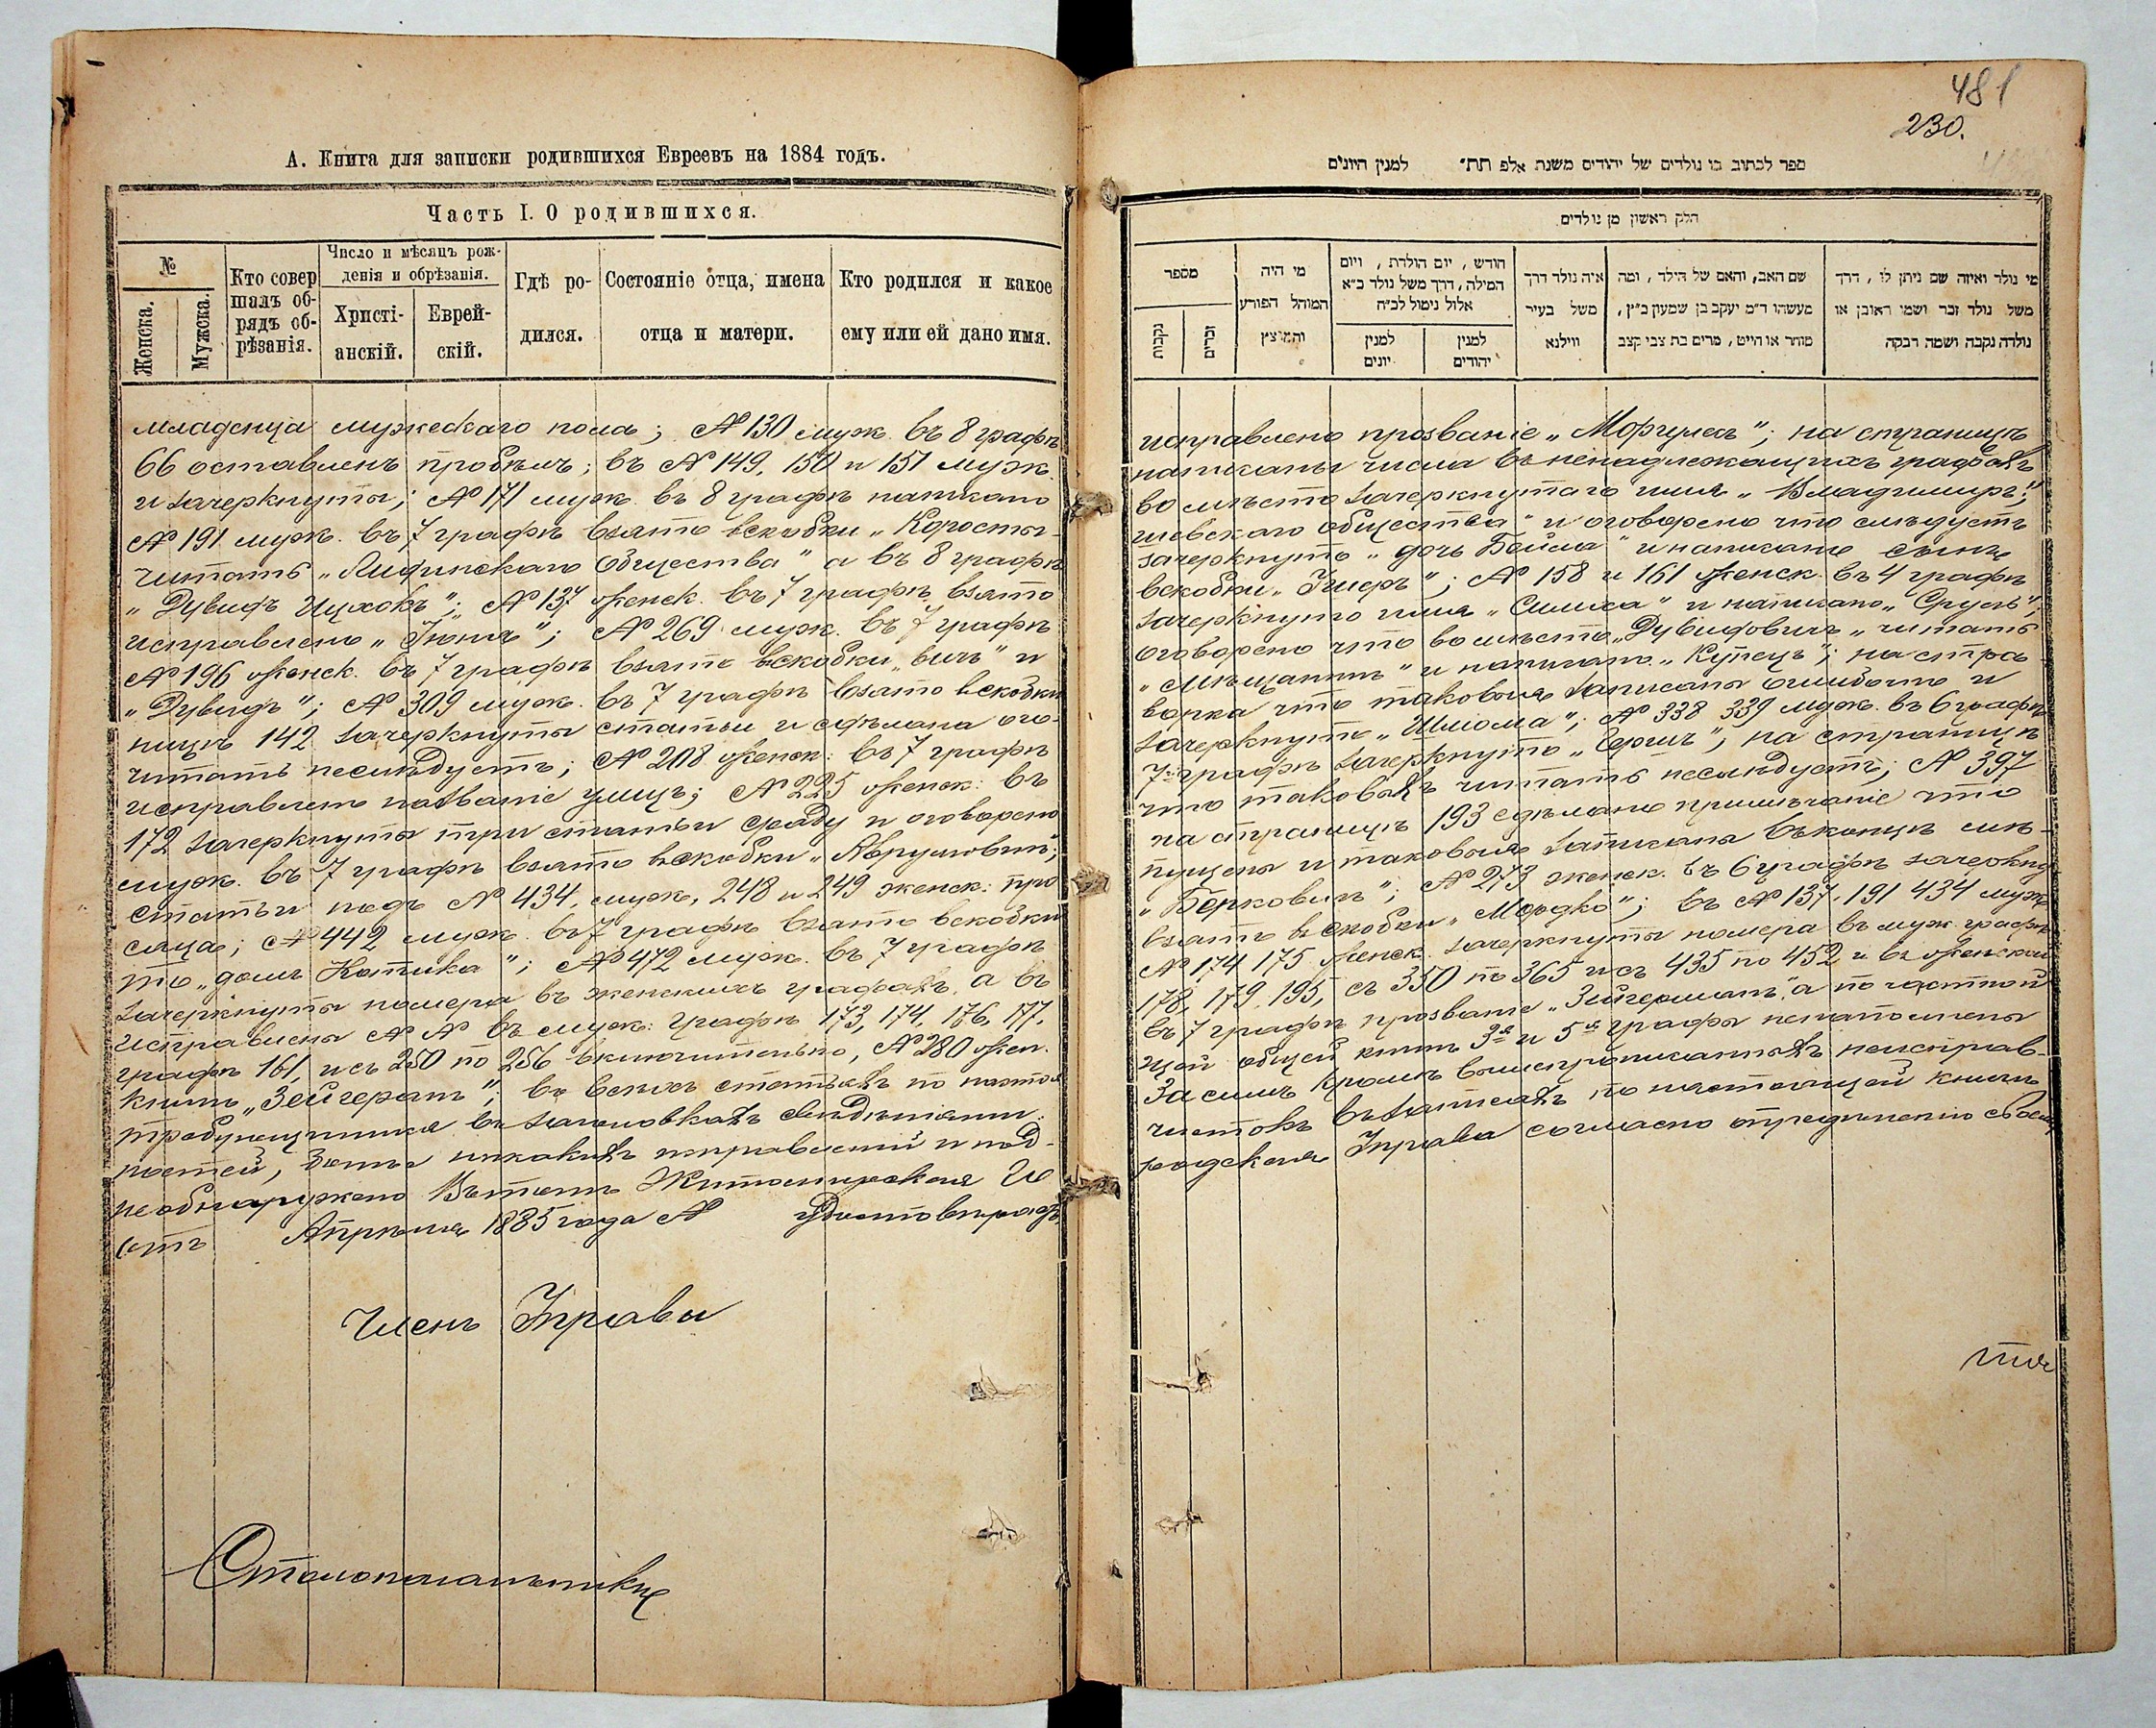 А. Книга для записки родившихся Евреевъ на 1884 годъ.
Часть I. О родившихся.
№
Женска.
Мужска.
Кто совер
шалъ об-
рядъ об-
рѣзанія.
Число и мѣсяцъ рож-
денія и обрѣзанія.
Христі-
анскій.
Еврей-
скій.
Гдѣ ро-
дился.
Состояніе отца, имена
отца и матери.
Кто родился и какое
ему или ей дано имя.
младенца мужескаго пола; № 130 муж. въ 8 графѣ
66 оставленъ пробѣлъ; въ № 149, 150 и 151 муж.
и зачеркнуты; № 171 муж. въ 8 графѣ написано
№ 191 муж. въ 7 графѣ взято вскобки „Коросты-
читать „Лидинскаго Общества" а въ 8 графѣ
„Дувидъ Ицхокъ"; № 137 женск. въ 7 графѣ взято
исправлено „Іюня"; № 269 муж. въ 7 графѣ
№ 196 женск. въ 7 графѣ взято вскобки „вичъ" и
„Дувидъ"; № 309 муж. въ 7 графѣ взято вскобки
ницѣ 142 зачеркнуты статьи и сдѣлана ого-
читать неслѣдуетъ; № 208 женск. въ 7 графѣ
исправлено названіе улицъ; № 225 женск. въ
172 зачеркнуты три статьи сряду и оговорено
муж. въ 7 графѣ взято вскобки „Абрумовичъ";
статьи подъ № 434, муж, 248 и 249 женск. про
сяца; № 442 муж. въ 7 графѣ взято вскобки
то „домъ Котика"; № 472 муж. въ 7 графѣ
зачеркнуты номера въ женскихъ графахъ, а въ
исправлена № № въ муж. графѣ 173, 174, 176, 177,
графѣ 161, и съ 250 по 256 включительно, № 280 жен.
книгѣ „Зейгерманъ"; въ всѣхъ статьяхъ по насто
требующимися въ заголовкахъ свидѣтелями.
ностей, болѣе никакихъ исправленій и под-
необнаружено. Въ томъ Житомирская Го
отъ Апрѣля 1885 года № удостовѣряетъ
Членъ Управы
Столоначальникъ
481
230.
ספר לכתוב בו נולדים של יהודים משנת אלפ תת״ למנין היונים
חלק ראשון מן נולדים
מספר
נקבות
זכרים
מי היה
המוהל הפורע
והמוצץ
חודש, יום הולדת, ויום
המילה, דרך משל נולד כ״א
אלול נימול לכ״ח
למנין
יונים
למנין
יהודים
איה נולד דרך
משל בעיר
ווילנא
שם האב, והאם של הילד, ומה
מעשהו ד״מ יעקב בן שמעון כ״ץ,
סוחר או חייט, מרים בת צבי קצב
מי נולד ואיזה שם ניתן לו, דרך
משל נולד זכר ושמו ראובן או
נולדה נקבה ושמה רבקה
исправлено прозваніе „Моргулесъ"; на страницѣ
написаны числа въ ненадлежащихъ графахъ
во мѣсто зачеркнутаго имя „Владимиръ";
шевскаго общества" и оговорено что слѣдуетъ
зачеркнуто „дочь Бейла" и написано сынъ
вскобки „Ушеръ"; № 158 и 161 женск. въ 4 графѣ
зачеркнуто имя „Симха" и написано „Сруль";
оговорено что во мѣсто „Дувидовичъ" читать
„мѣщанинъ" и написано „Купецъ"; на стра
ворка что таковыя записаны ошибочно и
зачеркнуто „Шлома"; № 338 339 муж. въ 6 графѣ
7 графѣ зачеркнуто „Гершъ"; на страницѣ
что таковыхъ читать неслѣдуетъ; № 397
на страницѣ 193 сдѣлано примѣчаніе что
пущены и таковыя записаны въ концѣ мѣ-
„Берковичъ"; № 273 женск. въ 6 графѣ зачеркну
взято вскобки „Мордко"; въ № 137, 191 434 муж
№ 174 175 женск. зачеркнуты номера въ муж. графѣ
178, 179, 195, съ 350 по 365 и съ 435 по 452 и въ женской
въ 7 графѣ прозваніе „Зейгерманъ", а по частной
щей общей книгѣ 3я и 5я графы незаполнены
За симъ кромѣ вышепрописанныхъ неисправ-
чистокъ въ записяхъ по настоящей книгѣ
родская Управа согласно опредѣленію своему